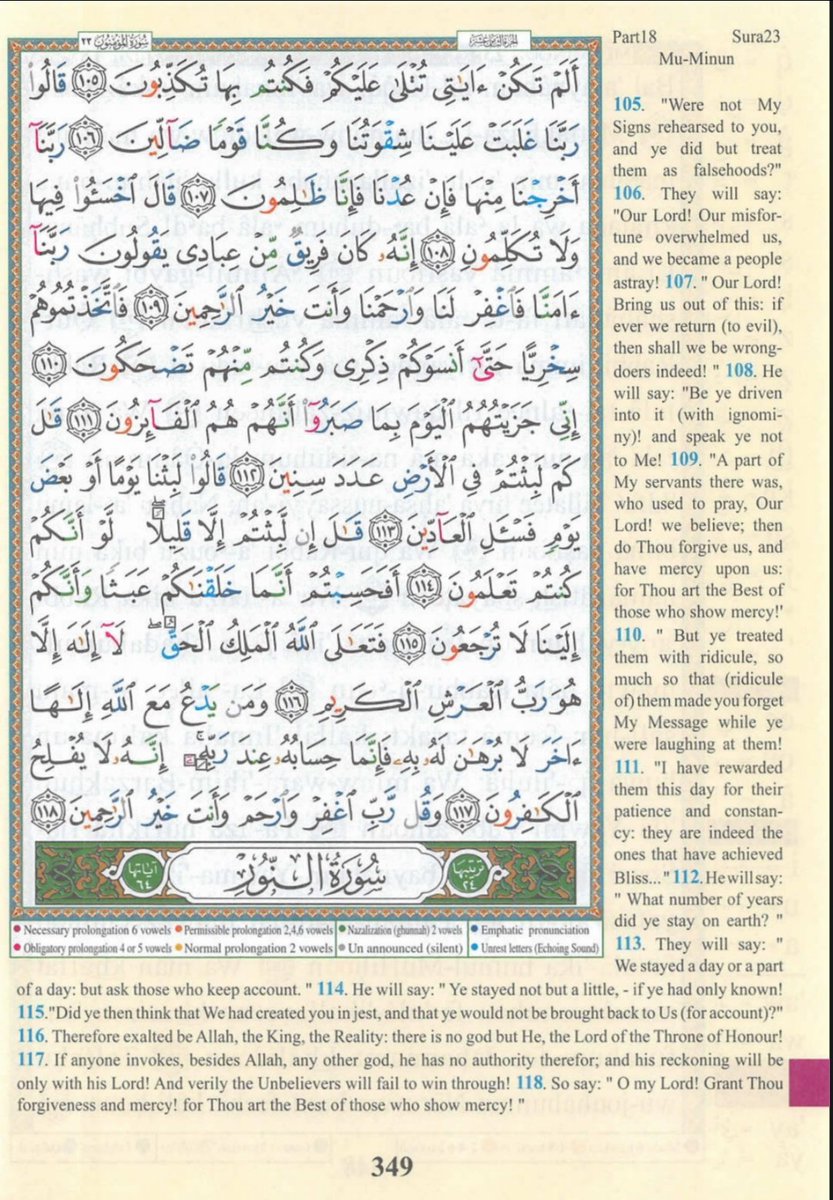 سُورَةُ المُؤْمِنُونَ ٢٣
الجزء الثامن عشر
أَلَمْ تَكُنْ ءَايَٰتِى تُتْلَىٰ عَلَيْكُمْ فَكُنتُم بِهَا تُكَذِّبُونَ ١٠٥ قَالُوا۟
رَبَّنَا غَلَبَتْ عَلَيْنَا شِقْوَتُنَا وَكُنَّا قَوْمًا ضَآلِّينَ ١٠٦ رَبَّنَآ
أَخْرِجْنَا مِنْهَا فَإِنْ عُدْنَا فَإِنَّا ظَٰلِمُونَ ١٠٧ قَالَ ٱخْسَـُٔوا۟ فِيهَا
وَلَا تُكَلِّمُونِ ١٠٨ إِنَّهُۥ كَانَ فَرِيقٌ مِّنْ عِبَادِى يَقُولُونَ رَبَّنَآ
ءَامَنَّا فَٱغْفِرْ لَنَا وَٱرْحَمْنَا وَأَنتَ خَيْرُ ٱلرَّٰحِمِينَ ١٠٩ فَٱتَّخَذْتُمُوهُمْ
سِخْرِيًّا حَتَّىٰٓ أَنسَوْكُمْ ذِكْرِى وَكُنتُم مِّنْهُمْ تَضْحَكُونَ ١١٠
إِنِّى جَزَيْتُهُمُ ٱلْيَوْمَ بِمَا صَبَرُوٓا۟ أَنَّهُمْ هُمُ ٱلْفَآئِزُونَ ١١١ قَٰلَ
كَمْ لَبِثْتُمْ فِى ٱلْأَرْضِ عَدَدَ سِنِينَ ١١٢ قَالُوا۟ لَبِثْنَا يَوْمًا أَوْ بَعْضَ
يَوْمٍ فَسْـَٔلِ ٱلْعَآدِّينَ ١١٣ قَٰلَ إِن لَّبِثْتُمْ إِلَّا قَلِيلًا ۖ لَّوْ أَنَّكُمْ
كُنتُمْ تَعْلَمُونَ ١١٤ أَفَحَسِبْتُمْ أَنَّمَا خَلَقْنَٰكُمْ عَبَثًا وَأَنَّكُمْ
إِلَيْنَا لَا تُرْجَعُونَ ١١٥ فَتَعَٰلَى ٱللَّهُ ٱلْمَلِكُ ٱلْحَقُّ ۖ لَآ إِلَٰهَ إِلَّا
هُوَ رَبُّ ٱلْعَرْشِ ٱلْكَرِيمِ ١١٦ وَمَن يَدْعُ مَعَ ٱللَّهِ إِلَٰهًا
ءَاخَرَ لَا بُرْهَٰنَ لَهُۥ بِهِۦ فَإِنَّمَا حِسَابُهُۥ عِندَ رَبِّهِۦٓ ۚ إِنَّهُۥ لَا يُفْلِحُ
ٱلْكَٰفِرُونَ ١١٧ وَقُل رَّبِّ ٱغْفِرْ وَٱرْحَمْ وَأَنتَ خَيْرُ ٱلرَّٰحِمِينَ ١١٨
ترتيبها ٢٤
سُورَةُ النُّورِ
آياتها ٦٤
Necessary prolongation 6 vowels
Permissible prolongation 2,4,6 vowels
Nazalization (ghunnah) 2 vowels
Emphatic pronunciation
Obligatory prolongation 4 or 5 vowels
Normal prolongation 2 vowels
Un announced (silent)
Unrest letters (Echoing Sound)
Part18 Sura23
Mu-Minun
105. "Were not My
Signs rehearsed to you,
and ye did but treat
them as falsehoods?"
106. They will say:
"Our Lord! Our misfor-
tune overwhelmed us,
and we became a people
astray! 107. " Our Lord!
Bring us out of this: if
ever we return (to evil),
then shall we be wrong-
doers indeed! " 108. He
will say: "Be ye driven
into it (with ignomi-
ny)! and speak ye not
to Me! 109. "A part of
My servants there was,
who used to pray, Our
Lord! we believe; then
do Thou forgive us, and
have mercy upon us:
for Thou art the Best of
those who show mercy!'
110. " But ye treated
them with ridicule, so
much so that (ridicule
of) them made you forget
My Message while ye
were laughing at them!
111. "I have rewarded
them this day for their
patience and constan-
cy: they are indeed the
ones that have achieved
Bliss... " 112. He will say:
" What number of years
did ye stay on earth? "
113. They will say: "
We stayed a day or a part
of a day: but ask those who keep account. " 114. He will say: " Ye stayed not but a little, - if ye had only known!
115."Did ye then think that We had created you in jest, and that ye would not be brought back to Us (for account)?"
116. Therefore exalted be Allah, the King, the Reality: there is no god but He, the Lord of the Throne of Honour!
117. If anyone invokes, besides Allah, any other god, he has no authority therefor; and his reckoning will be
only with his Lord! And verily the Unbelievers will fail to win through! 118. So say: " O my Lord! Grant Thou
forgiveness and mercy! for Thou art the Best of those who show mercy! "
349